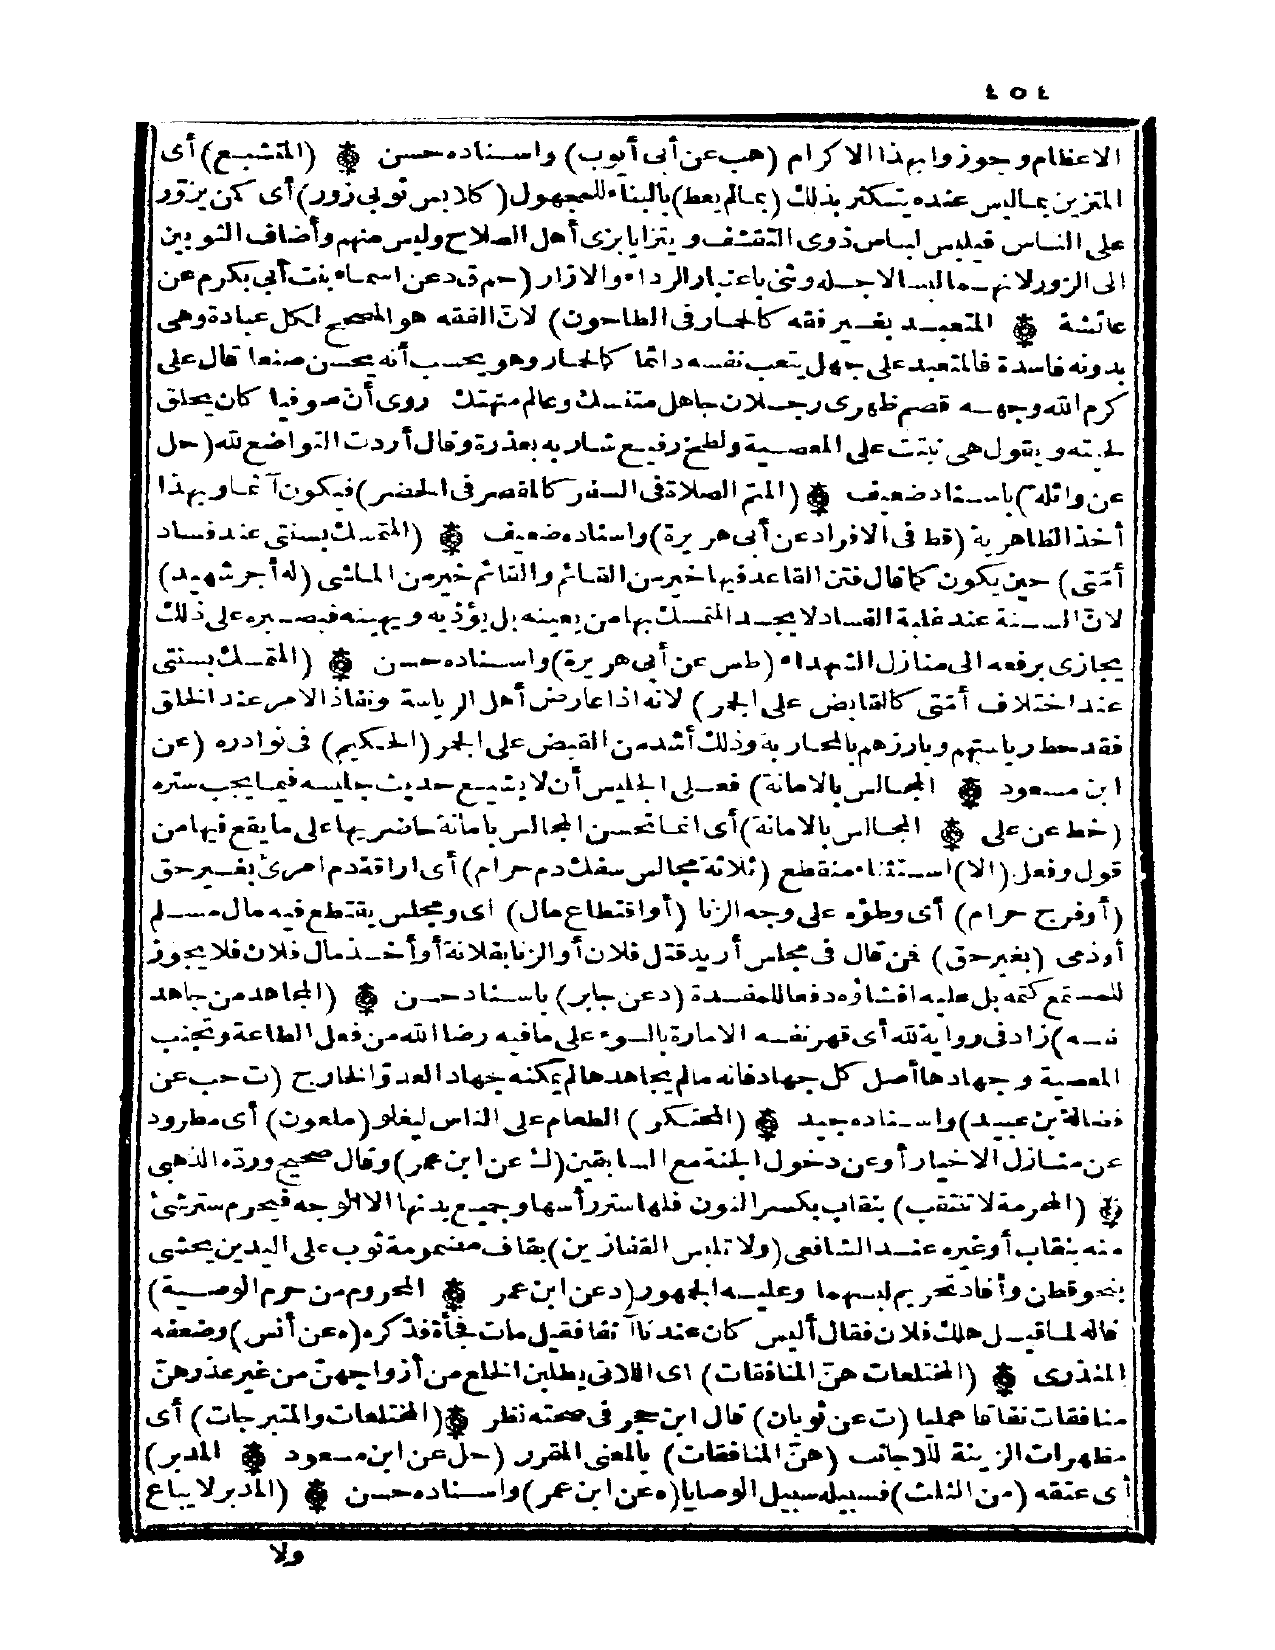 ٤٥٤
الاعظام وجوزوا بهذا الاكرام (هب عن أبى أيوب) واسناده حسن ۞ (المتشبع) أى
المتزين بما ليس عنده يتكثر بذلك (بما لم يعط) بالبناء للمجهول (كلابس ثوبى زور) أى كمن يزوّر
على الناس فيلبس لباس ذوى التقشف و يتزايا بزى أهل الصلاح وليس منهم وأضاف الثوبين
الى الزور لانهما لبسا لاجله وثنى باعتبار الرداء والازار (حم ق د عن اسماء بنت أبى بكر م عن
عائشة ۞ المتعبد بغير فقه كالحمار فى الطاحون) لانّ الفقه هو المصحح لكل عبادة وهى
بدونه فاسدة فالمتعبد على جهل يتعب نفسه دائما كالحمار وهو يحسب أنه يحسن صنعا قال على
كرم الله وجهه قصم ظهرى رجلان جاهل متنسك وعالم متهتك روى أن صوفيا كان يحلق
لحيته و يقول هى نبتت على المعصية ولطخ رفيع شاربه بعذرة وقال أردت التواضع لله (حل
عن واثلة) باسناد ضعيف ۞ (المتم الصلاة فى السفر كالمقصر فى الحضر) فيكون آثما وبهذا
أخذ الظاهرية (قط فى الافراد عن أبى هريرة) واسناده ضعيف ۞ (المتمسك بسنتى عند فساد
أمّتى) حين يكون كما قال فتن القاعد فيها خير من القائم والقائم خير من الماشى (له أجر شهيد)
لانّ السنة عند غلبة الفساد لا يجد المتمسك بها من يعينه بل يؤذيه و يهينه فبصبره على ذلك
يجازى برفعه الى منازل الشهداء (طس عن أبى هريرة) واسناده حسن ۞ (المتمسك بسنتى
عند اختلاف أمّتى كالقابض على الجمر) لانه اذا عارض أهل الرياسة ونفاذ الامر عند الخلق
فقد حط رياستهم وبارزهم بالمحاربة وذلك أشد من القبض على الجمر (الحكيم) فى نوادره (عن
ابن مسعود ۞ المجالس بالامانة) فعلى الجليس أن لا يشيع حديث جليسه فيما يجب ستره
(خط عن على ۞ المجالس بالامانة) أى انما تحسن المجالس بامانة حاضريها على ما يقع فيها من
قول وفعل (الا) استثناء منقطع (ثلاثة مجالس سفك دم حرام) أى اراقة دم امرئ بغير حق
(أو فرج حرام) أى وطؤه على وجه الزنا (أو اقتطاع مال) اى ومجلس يقتطع فيه مال مسلم
أو ذمى (بغير حق) فمن قال فى مجلس أريد قتل فلان أو الزنا بفلانة أو أخذ مال فلان فلا يجوز
للمستمع كتمه بل عليه افشاؤه دفعا للمفسدة (د عن جابر) باسناد حسن ۞ (المجاهد من جاهد
نفسه) زاد فى رواية لله أى قهر نفسه الامارة بالسوء على ما فيه رضا الله من فعل الطاعة وتجنب
المعصية وجهادها أصل كل جهاد فانه ما لم يجاهدها لم يمكنه جهاد العدوّ الخارج (ت حب عن
فضالة بن عبيد) واسناده جيد ۞ (المحتكر) الطعام على الناس ليغلو (ملعون) أى مطرود
عن منازل الاخيار أو عن دخول الجنة مع السابقين (ك عن ابن عمر) وقال صحيح ورده الذهبى
۞ (المحرمة لا تنتقب) بنقاب بكسر النون فلها ستر رأسها وجميع بدنها الا الوجه فيحرم ستر شئ
منه بنقاب أو غيره عند الشافعى (ولا تلبس القفازين) بقاف مضمومة ثوب على اليدين يحشى
بنحو قطن وأفاد تحريم لبسهما وعليه الجمهور (د عن ابن عمر ۞ المحروم من حرم الوصية)
قاله لما قيل هلك فلان فقال أليس كان عندنا آنفا فقيل مات فجأة فذكره (ه عن أنس) وضعفه
المنذرى ۞ (المختلعات هنّ المنافقات) اى اللاتى يطلبن الخلع من أزواجهنّ من غير عذر هنّ
منافقات نفاقا عمليا (ت عن ثوبان) قال ابن حجر فى صحته نظر ۞ (المختلعات والمتبرجات) أى
مظهرات الزينة للاجانب (هنّ المنافقات) بالمعنى المقرر (حل عن ابن مسعود ۞ المدبر)
أى عتقه (من الثلث) فسبيله سبيل الوصايا (ه عن ابن عمر) واسناده حسن ۞ (المدبر لا يباع
ولا